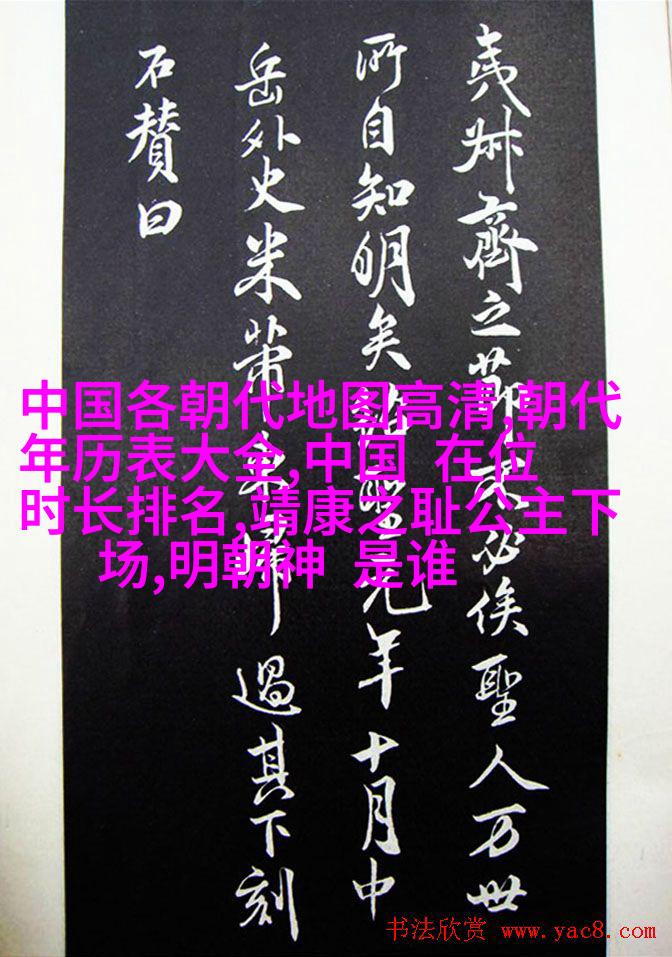 夷叔齊之節不必俟聖人万世
所自知明矣紹聖元年十月中
岳外史米芾歸過其下刻
石賛曰
中国各朝代地图高清,朝代
年历表大全,中国 在位
时长排名,靖康之耻公主下
场,明朝神 是谁
书法欣赏 www.yac8.com